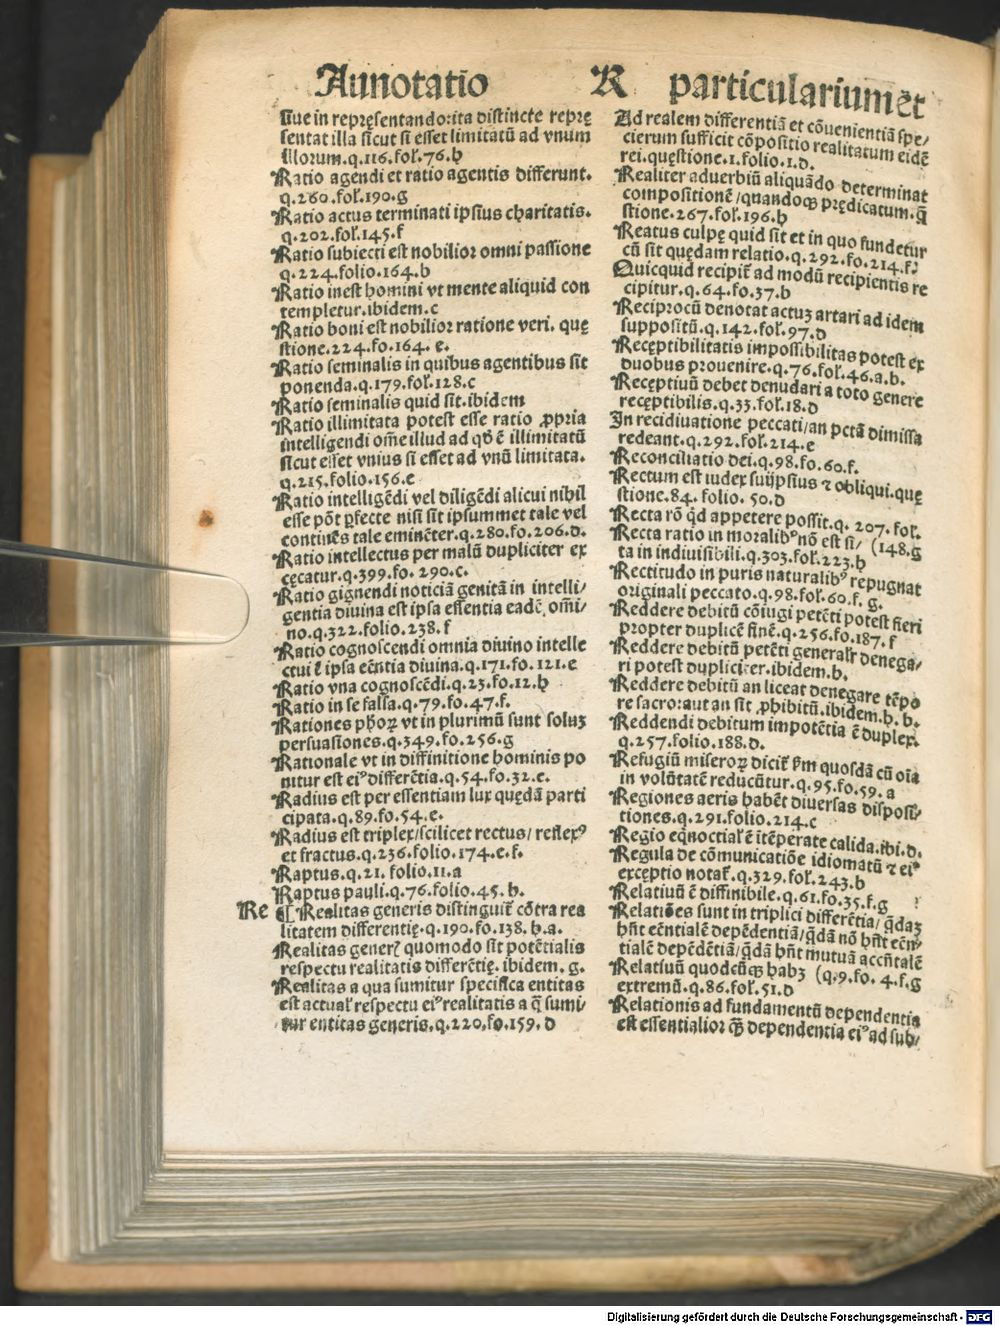 Annotatio R particularium et
siue in repręsentando: ita distincte reprę
sentat illa sicut si esset limitatū ad vnum
illorum. q. 116. fol. 76. h
Ratio agendi et ratio agentis differunt.
q. 260. fol. 190. g
Ratio actus terminati ipsius charitatis.
q. 202. fol. 145. f
Ratio subiecti est nobilior omni passione
q. 224. folio. 164. b
Ratio inest homini vt mente aliquid con
templetur. ibidem. c
Ratio boni est nobilior ratione veri. quę
stione. 224. fo. 164. e.
Ratio seminalis in quibus agentibus sit
ponenda. q. 179. fol. 128. c
Ratio seminalis quid sit. ibidem
Ratio illimitata potest esse ratio ꝓpria
intelligendi om̄e illud ad qđ ē illimitatū
sicut esset vnius si esset ad vnū limitata.
q. 215. folio. 156. e
Ratio intelligēdi vel diligēdi alicui nihil
esse pōt ꝑfecte nisi sit ipsummet tale vel
continēs tale eminēter. q. 280. fo. 206. d.
Ratio intellectus per malū dupliciter ex
cęcatur. q. 399. fo. 290. c.
Ratio gignendi noticiā genitā in intelli/
gentia diuina est ipsa essentia eadē, om̄i/
no. q. 322. folio. 238. f
Ratio cognoscendi omnia diuino intelle
ctui ē ipsa eēntia diuina. q. 171. fo. 121. e
Ratio vna cognoscēdi. q. 23. fo. 12. h
Ratio in se falsa. q. 79. fo. 47. f.
Rationes phoꝝ vt in plurimū sunt soluꝫ
persuasiones. q. 349. fo. 256. g
Rationale vt in diffinitione hominis po
nitur est eiꝰ differētia. q. 54. fo. 32. e.
Radius est per essentiam lux quędā parti
cipata. q. 89. fo. 54. e.
Radius est triplex/ scilicet rectus/ reflexꝰ
et fractus. q. 236. folio. 174. e. f.
Raptus. q. 21. folio. 11. a
Raptus pauli. q. 76. folio. 45. h.
Re ¶ Realitas generis distinguit̄ cōtra rea
litatem differentię. q. 190. fo. 138. h. a.
Realitas generꝭ quomodo sit potētialis
respectu realitatis differētię. ibidem. g.
Realitas a qua sumitur specifica entitas
est actual̄r respectu eiꝰ realitatis a q̄ sumi/
tur entitas generis. q. 220. fo. 159. d
Ad realem differentiā et cōuenientiā spe/
cierum sufficit cōpositio realitatum eidē
rei. quęstione. 1. folio. 1. d.
Realiter aduerbiū aliquādo determinat
compositionē/ quandoqꝫ prędicatum. q̄
stione. 267. fol. 196. h
Reatus culpę quid sit et in quo fundetur
cū sit quędam relatio. q. 292. fo. 214. f.
Quicquid recipit̄ ad modū recipientis re
cipitur. q. 64. fo. 37. b
Reciprocū denotat actuꝫ artari ad idem
suppositū. q. 142. fol. 97. d
Recęptibilitatis impossibilitas potest ex
duobus prouenire. q. 76. fol. 46. a. b.
Recęptiuū debet denudari a toto genere
recęptibilis. q. 33. fol. 18. d
In recidiuatione peccati/ an pctā dimissa
redeant. q. 292. fol. 214. e
Reconciliatio dei. q. 98. fo. 60. f.
Rectum est iudex suiipsius ⁊ obliqui. quę
stione. 84. folio. 50. d
Recta rō qd appetere possit. q. 207. fol.
Recta ratio in moralibꝰ nō est si/ (148. g
ta in indiuisibili. q. 303. fol. 223. h
Rectitudo in puris naturalibꝰ repugnat
originali peccato. q. 98. fol. 60. f. g.
Reddere debitū cōiugi petēti potest fieri
propter duplicē finē. q. 256. fo. 187. f
Reddere debitū petēti general̄r denega/
ri potest dupliciter. ibidem. h.
Reddere debitū an liceat denegare tēpo
re sacro: aut an sit ꝓhibitū. ibidem. h. b.
Reddendi debitum impotētia ē duplex.
q. 257. folio. 188. d.
Refugiū miseroꝝ dicit̄ ẜm quosdā cū oīa
in volūtatē reducūtur. q. 95. fo. 59. a
Regiones aeris habēt diuersas disposi/
tiones. q. 291. folio. 214. c
Regio eqnoctialꝭ ē itēperate calida. ibi. d.
Regula de cōmunicatiōe idiomatū ⁊ eiꝰ
excęptio notat̄. q. 329. fol. 243. b
Relatiuū ē diffinibile. q. 61. fo. 35. f. g
Relatiōes sunt in triplici differētia/ qdaꝫ
hn̄t eēntialē depēdentiā/ qdā nō hn̄t eēn/
tialē depēdētiā/ qdā hn̄t mutuā accn̄talē
Relatiuū quodcūqꝫ habꝫ (q. 9. fo. 4. f. g
extremū. q. 86. fol. 51. d
Relationis ad fundamentū dependentia
est essentialior qꝫ dependentia eiꝰ ad sub/
Digitalisierung gefördert durch die Deutsche Forschungsgemeinschaft - DFG